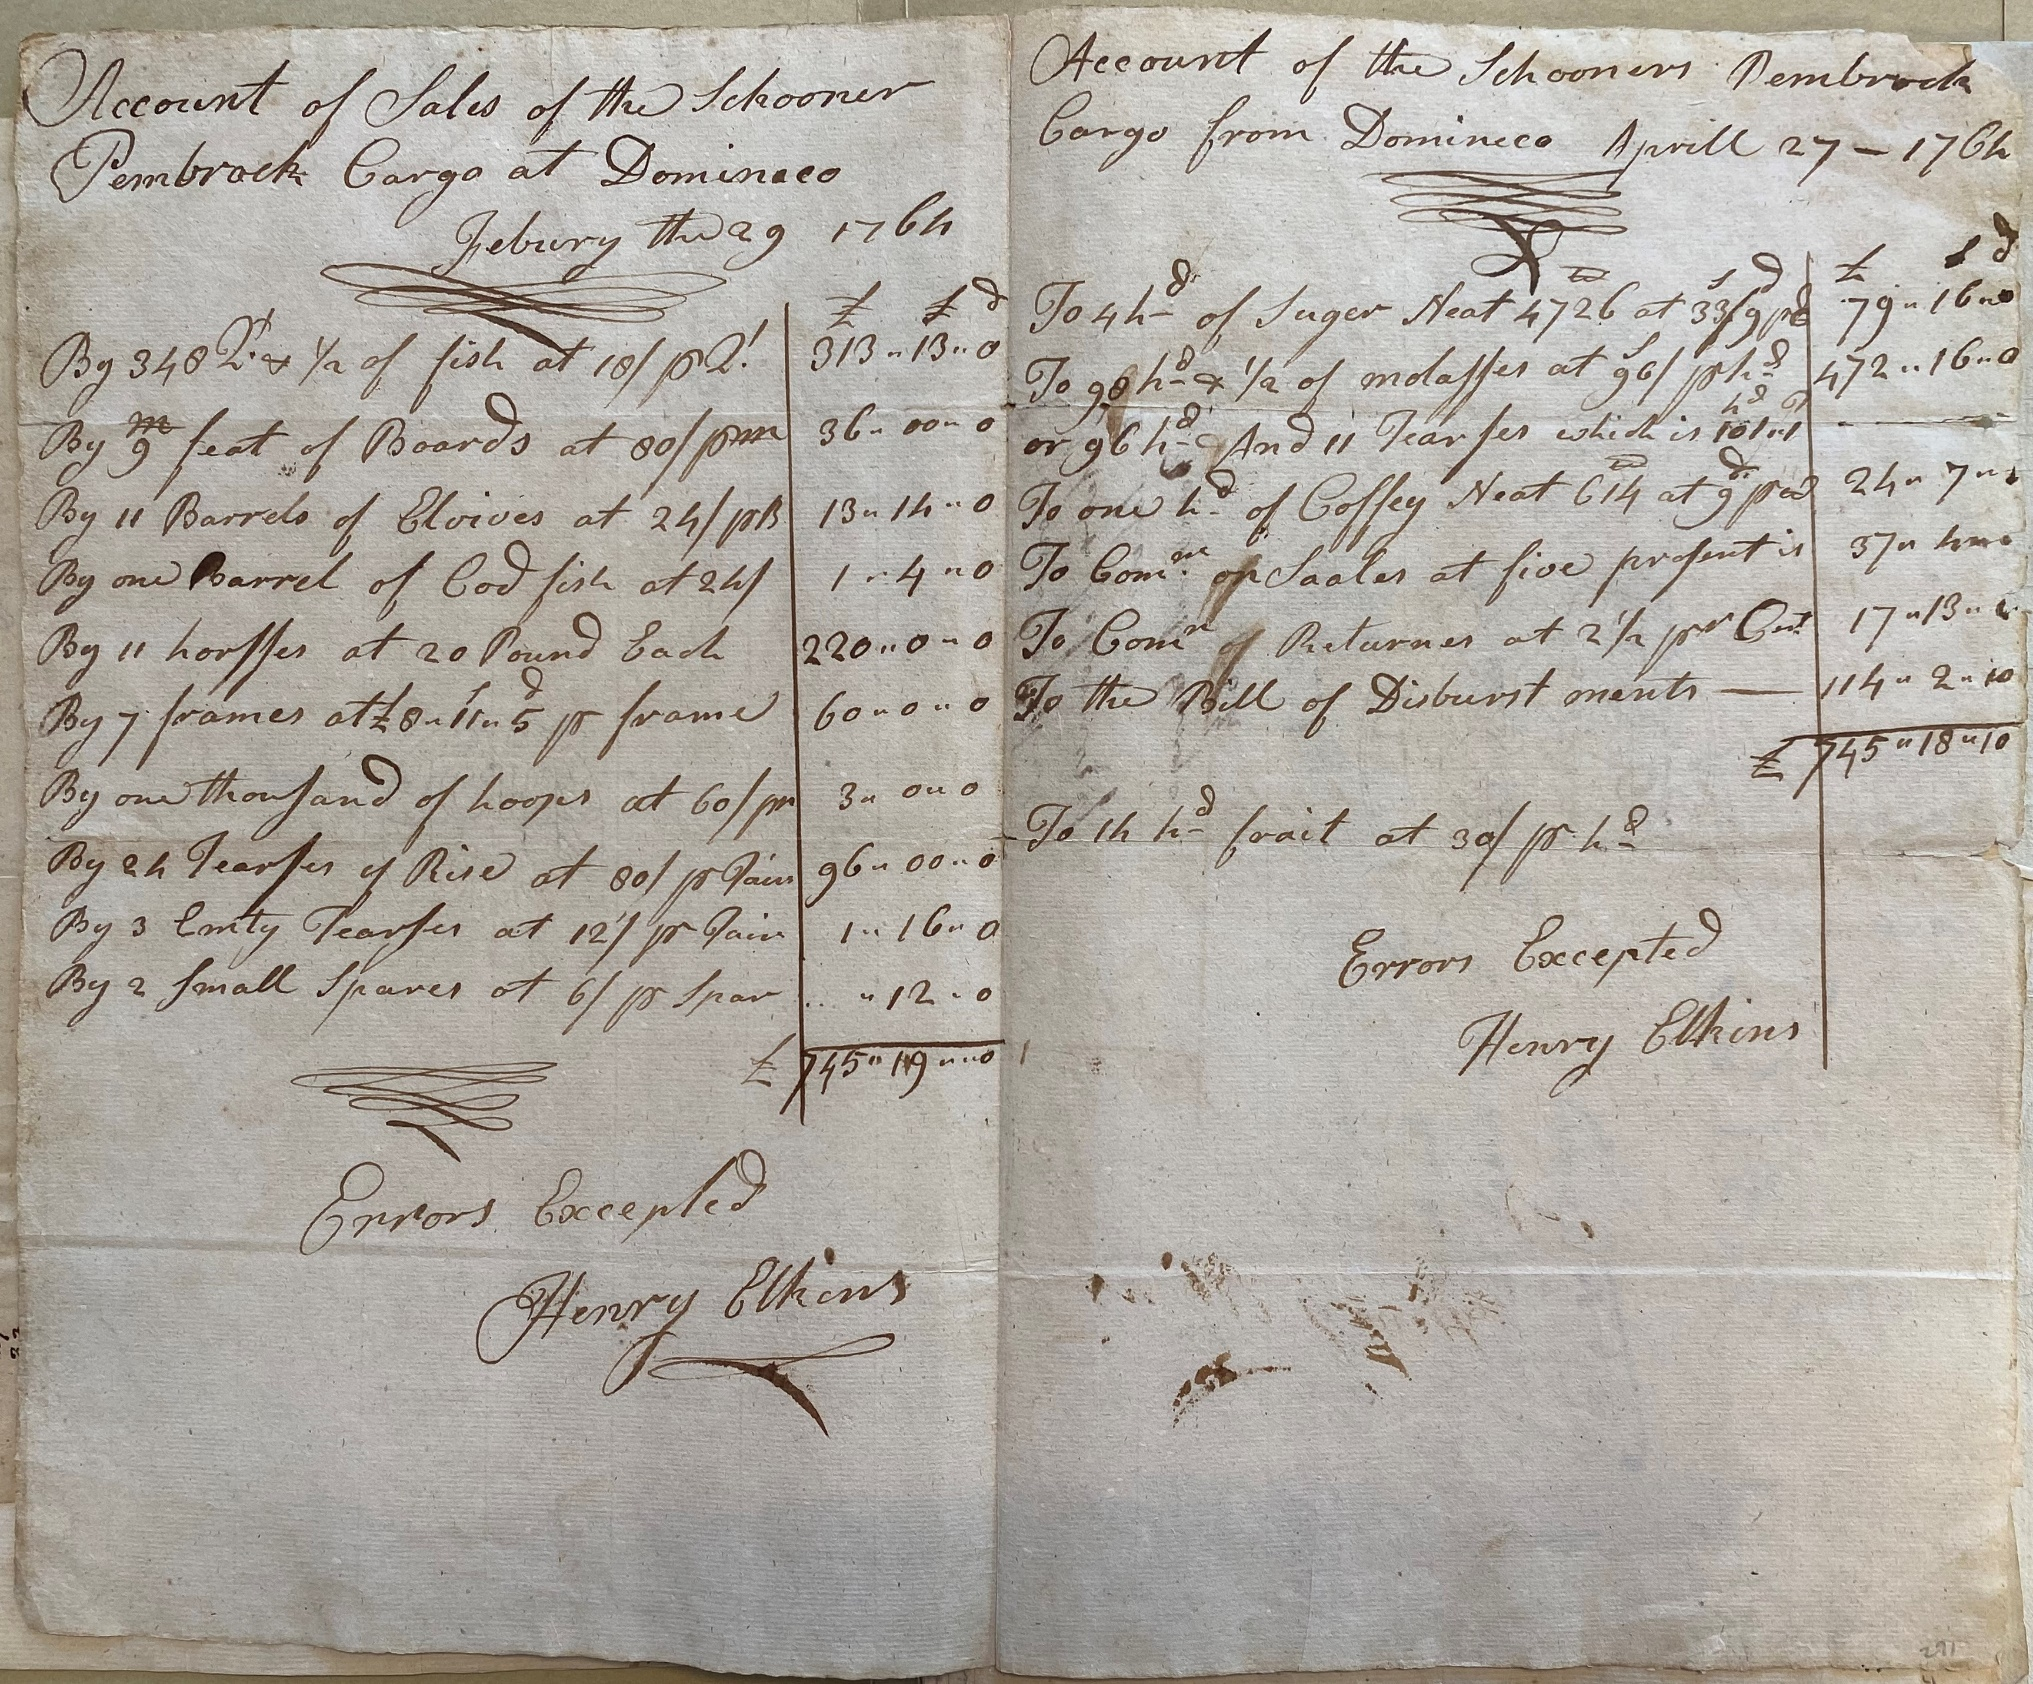 Account of Sales of the Schooner
Pembrock Cargo at Domineco
Febury the 29 1764
£ s d
By 348 Qts & 1/2 of fish at 18/ pr Qt 313 " 13 " 0
By 9 m feat of Boards at 80/ pr m 36 " 00 " 0
By 11 Barrels of Elvives at 24/ pr B 13 " 14 " 0
By one Barrel of Cod fish at 24/ 1 " 4 " 0
By 11 horsses at 20 Pound Each 220 " 0 " 0
By 7 frames at £8 " 11 s " 5 d pr frame 60 " 0 " 0
By one thousand of hoops at 60/ pr 3 " 0 " 0
By 24 Tearses of Rise at 80/ pr 96 " 00 " 0
By 3 Emty Tearses at 12/ pr 1 " 16 " 0
By 2 small Spares at 6/ pr Spar .. " 12 " 0
£ 745 " 19 " " 0
Errors Excepted
Henry Elkins
Account of the Schooners Pembrock
Cargo from Domineco Aprill 27 – 1764
£ s d
To 4 hd of Suger Neat 4726 at 33s/9d pr 79 " 16 " 0
To 98 hd & 1/2 of molasses at 96/ pr hd 472 " 16 " 0
or 96 hd And 11 Tearses which is 101 hd " 1 T
To one hd of Coffey Neat 614 at 9d pr 24 " 7 "
To Comn on Saales at five prsent is 37 " 4
To Comn of Returnes at 2 1/2 pr Cent 17 " 13 "
To the Bill of Disburst ments — 114 " 2 " 10
£ 745 " 18 " 10
To 14 hd frait at 30/ pr hd
Errors Excepted
Henry Elkins